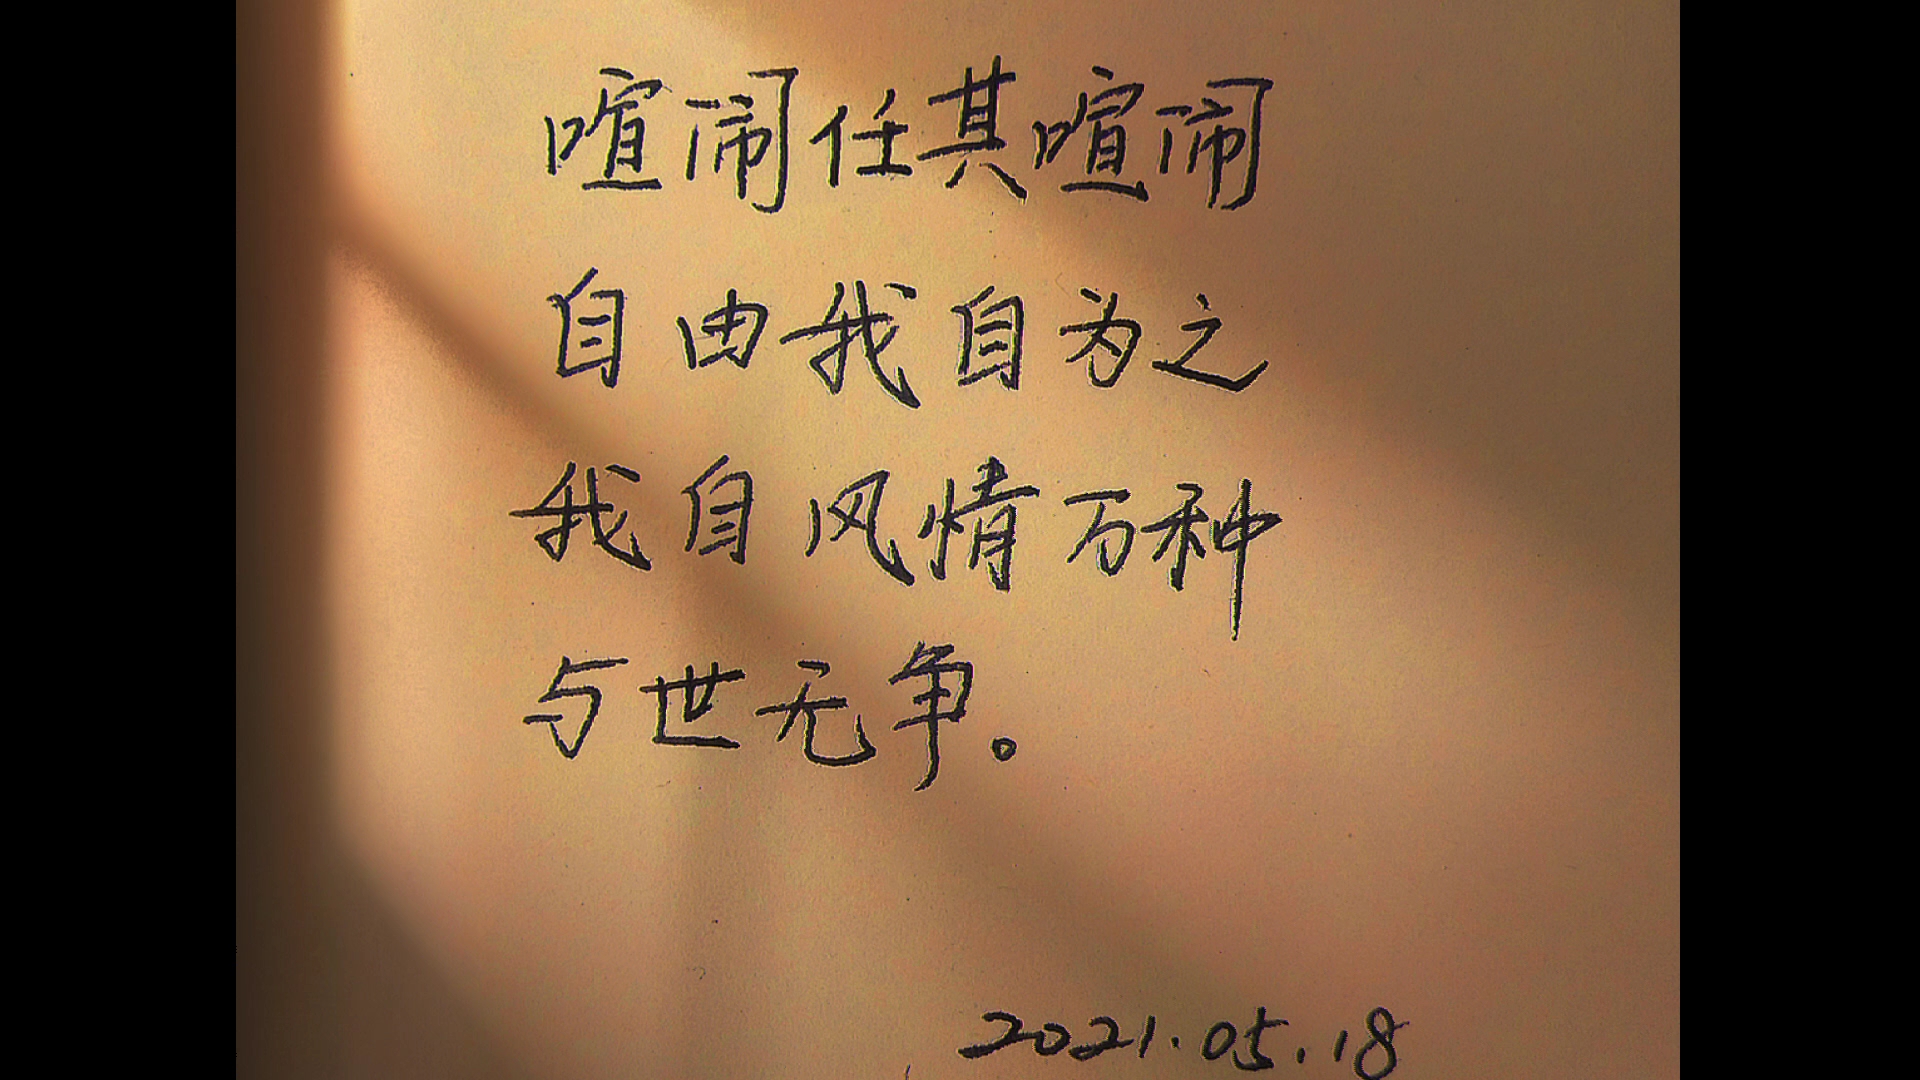 喧闹任其喧闹
自由我自为之
我自风情万种
与世无争。
2021.05.18